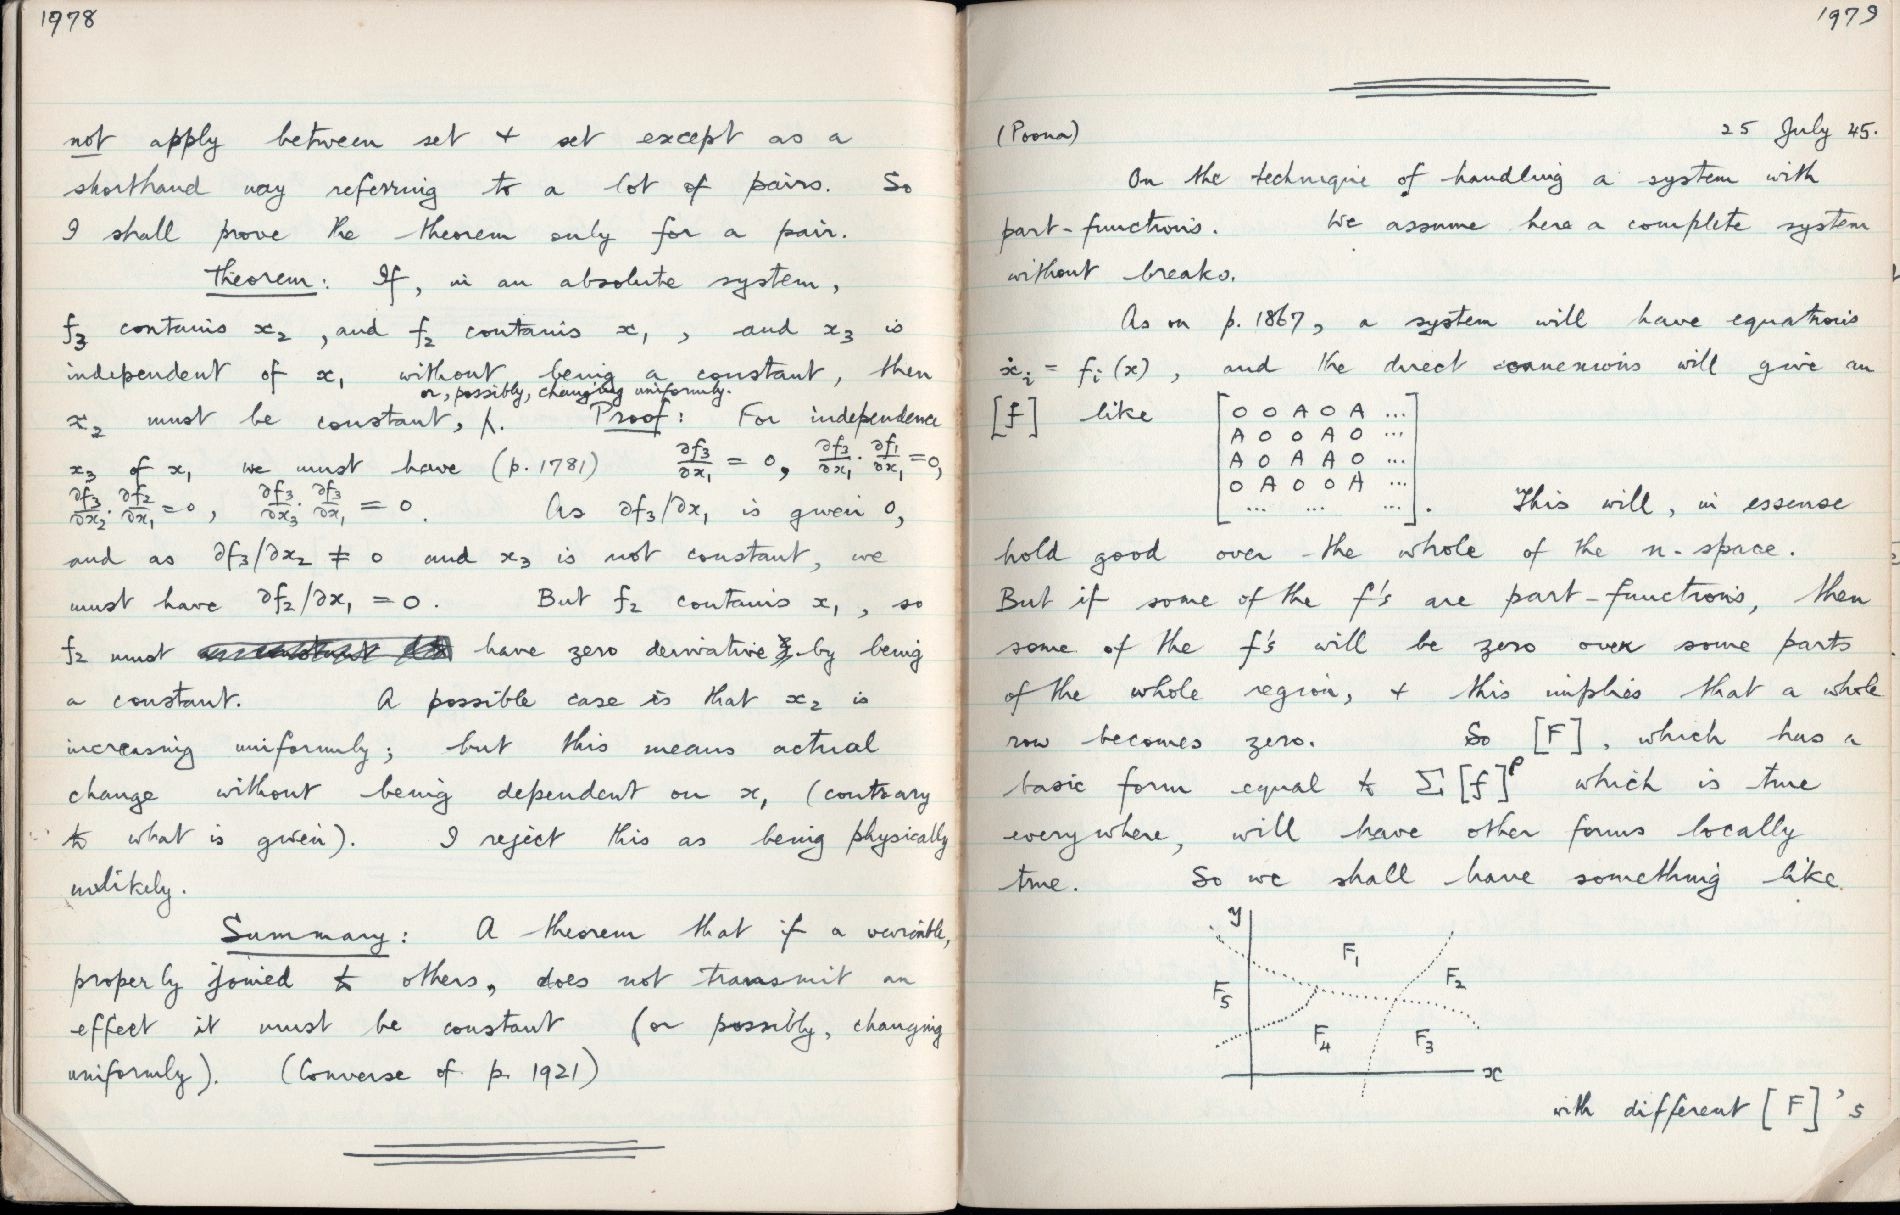 1978
not apply between set + set except as a
shorthand way referring to a lot of pairs. So
I shall prove the theorem only for a pair.
Theorem: If, in an absolute system,
f₃ contains x₂, and f₂ contains x₁, and x₃ is
independent of x₁ without being a constant, then
or, possibly, changing uniformly.
x₂ must be constant, ∧. Proof: For independence
x₃ of x₁ we must have (p. 1781) ∂f₃/∂x₁ = 0, ∂f₃/∂x₁ · ∂f₁/∂x₁ = 0,
∂f₃/∂x₂ · ∂f₂/∂x₁ = 0, ∂f₃/∂x₃ · ∂f₃/∂x₁ = 0. As ∂f₃/∂x₁ is given 0,
and as ∂f₃/∂x₂ ≠ 0 and x₃ is not constant, we
must have ∂f₂/∂x₁ = 0. But f₂ contains x₁, so
f₂ must have zero derivative by being
a constant. A possible case is that x₂ is
increasing uniformly; but this means actual
change without being dependent on x₁ (contrary
to what is given). I reject this as being physically
unlikely.
Summary: A theorem that if a variable,
properly joined to others, does not transmit an
effect it must be constant (or possibly, changing
uniformly). (Converse of p. 1921)
1979
(Poona) 25 July 45.
On the technique of handling a system with
part-functions. We assume here a complete system
without breaks.
As on p. 1867, a system will have equations
ẋᵢ = fᵢ(x), and the direct connexions will give an
[f] like
0 0 A 0 A ...
A 0 0 A 0 ...
A 0 A A 0 ...
0 A 0 0 A ...
... ... ...
. This will, in essense
hold good over the whole of the n-space.
But if some of the f's are part-functions, then
some of the f's will be zero over some parts
of the whole region, + this implies that a whole
row becomes zero. So [F], which has a
basic form equal to Σ[f]ᵖ which is true
everywhere, will have other forms locally
true. So we shall have something like
y
F₁
F₂
F₅
F₄
F₃
x
with different [F]'s